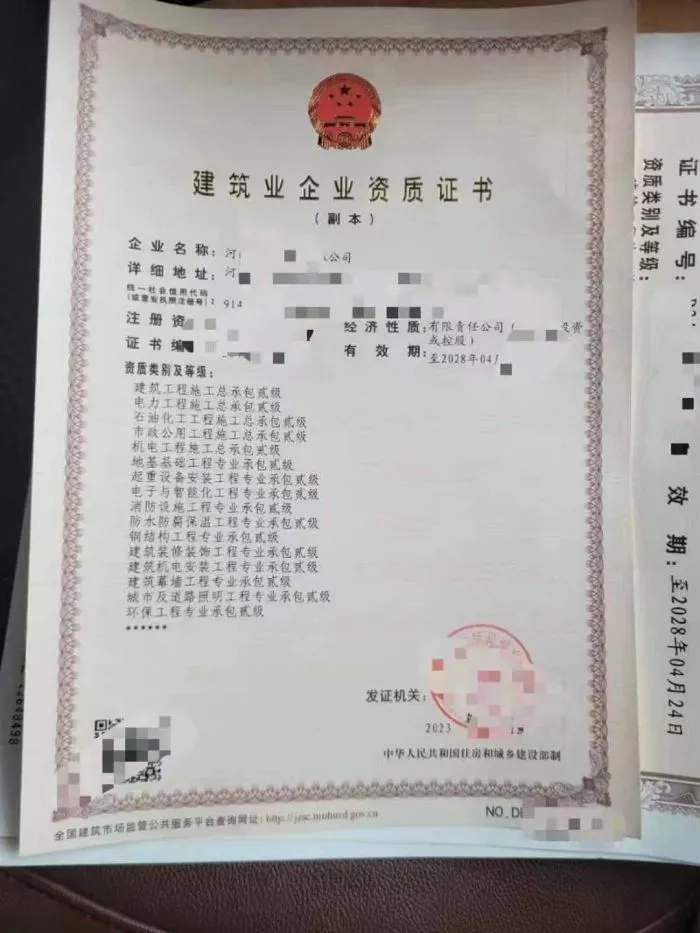 建筑业企业资质证书
（副本）
企业名称：河 公司
详细地址：河
统一社会信用代码
(或营业执照注册号)：914
注册资
经济性质：有限责任公司（ 投资
或控股）
证书编
有效期：至2028年04月
资质类别及等级：
建筑工程施工总承包贰级
电力工程施工总承包贰级
石油化工工程施工总承包贰级
市政公用工程施工总承包贰级
机电工程施工总承包贰级
地基基础工程专业承包贰级
起重设备安装工程专业承包贰级
电子与智能化工程专业承包贰级
消防设施工程专业承包贰级
防水防腐保温工程专业承包贰级
钢结构工程专业承包贰级
建筑装修装饰工程专业承包贰级
建筑机电安装工程专业承包贰级
建筑幕墙工程专业承包贰级
城市及道路照明工程专业承包贰级
环保工程专业承包贰级
******
发证机关：
2023
中华人民共和国住房和城乡建设部制
全国建筑市场监管公共服务平台查询网址：http://jzsc.mohurd.gov.cn
NO.D
证书编号：
资质类别及等级：
效期：至2028年04月24日